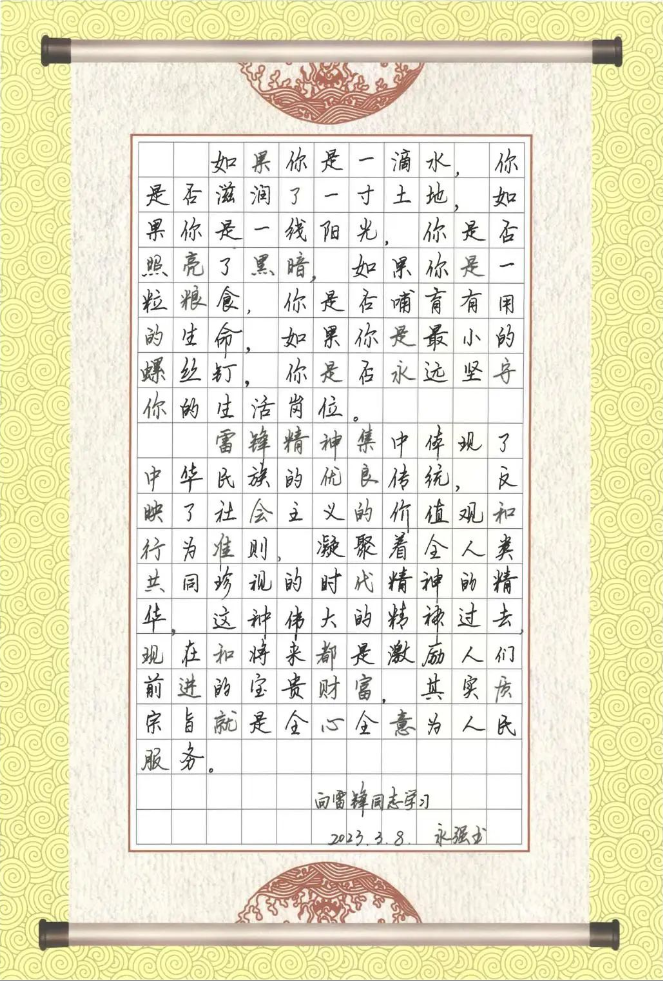 如果你是一滴水，你
是否滋润了一寸土地，如
果你是一线阳光，你是否
照亮了黑暗，如果你是一
粒粮食，你是否哺育有用
的生命，如果你是最小的
螺丝钉，你是否永远坚守
你的生活岗位。
雷锋精神集中体现了
中华民族的优良传统，反
映了社会主义的价值观和
行为准则，凝聚着全人类
共同珍视的时代精神的精
华，这种伟大的精神过去，
现在和将来都是激励人们
前进的宝贵财富，其实质
宗旨就是全心全意为人民
服务。
向雷锋同志学习
2023.3.8. 永强书